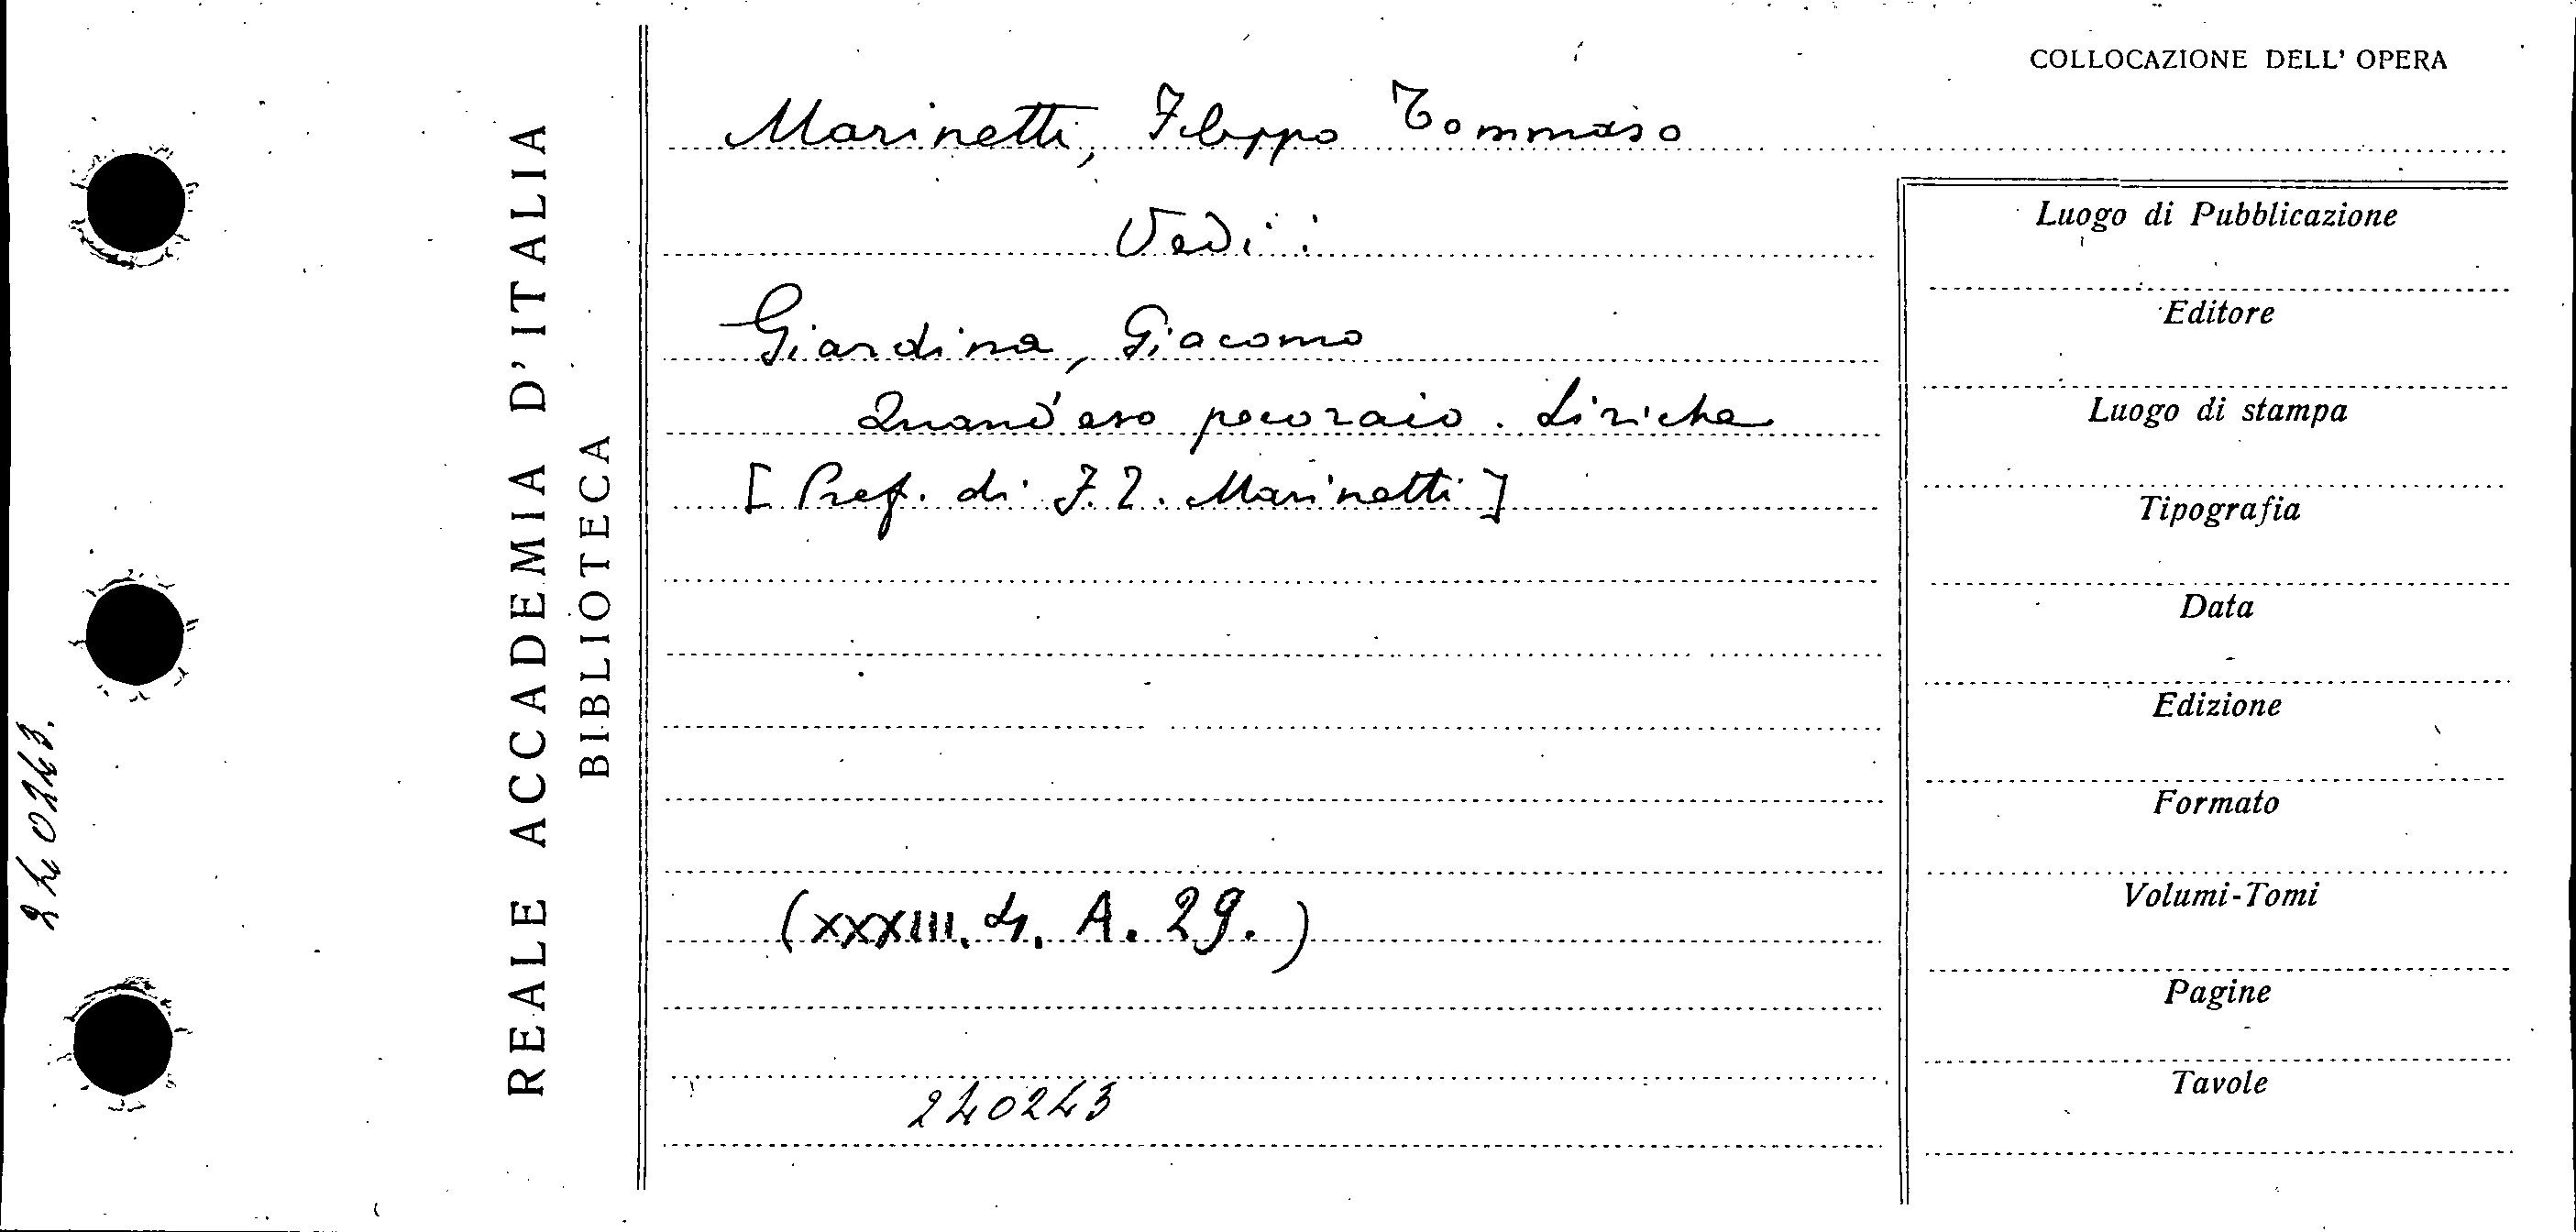 COLLOCAZIONE DELL' OPERA
Marinetti, Filippo Tommaso
Vedi:
Giardina, Giacomo
Quand'ero pecoraio. Liriche
[Pref. di F. T. Marinetti]
(XXXIII. 4. A. 29.)
240243
Luogo di Pubblicazione
Editore
Luogo di stampa
Tipografia
Data
Edizione
Formato
Volumi-Tomi
Pagine
Tavole
REALE ACCADEMIA D'ITALIA
BIBLIOTECA
240243.